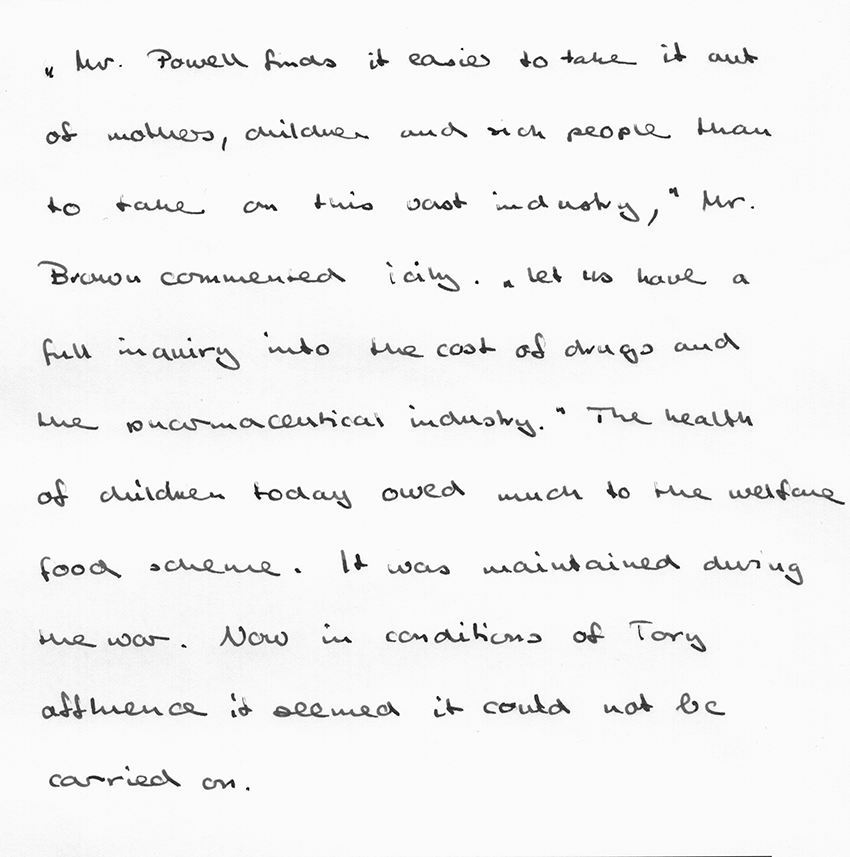 „ Mr. Powell finds it easier to take it out
of mothers, children and sick people than
to take on this vast industry,” Mr.
Brown commented icily. „ Let us have a
full inquiry into the cost of drugs and
the pharmaceutical industry.” The health
of children today owed much to the welfare
food scheme. It was maintained during
the war. Now in conditions of Tory
affluence it seemed it could not be
carried on.